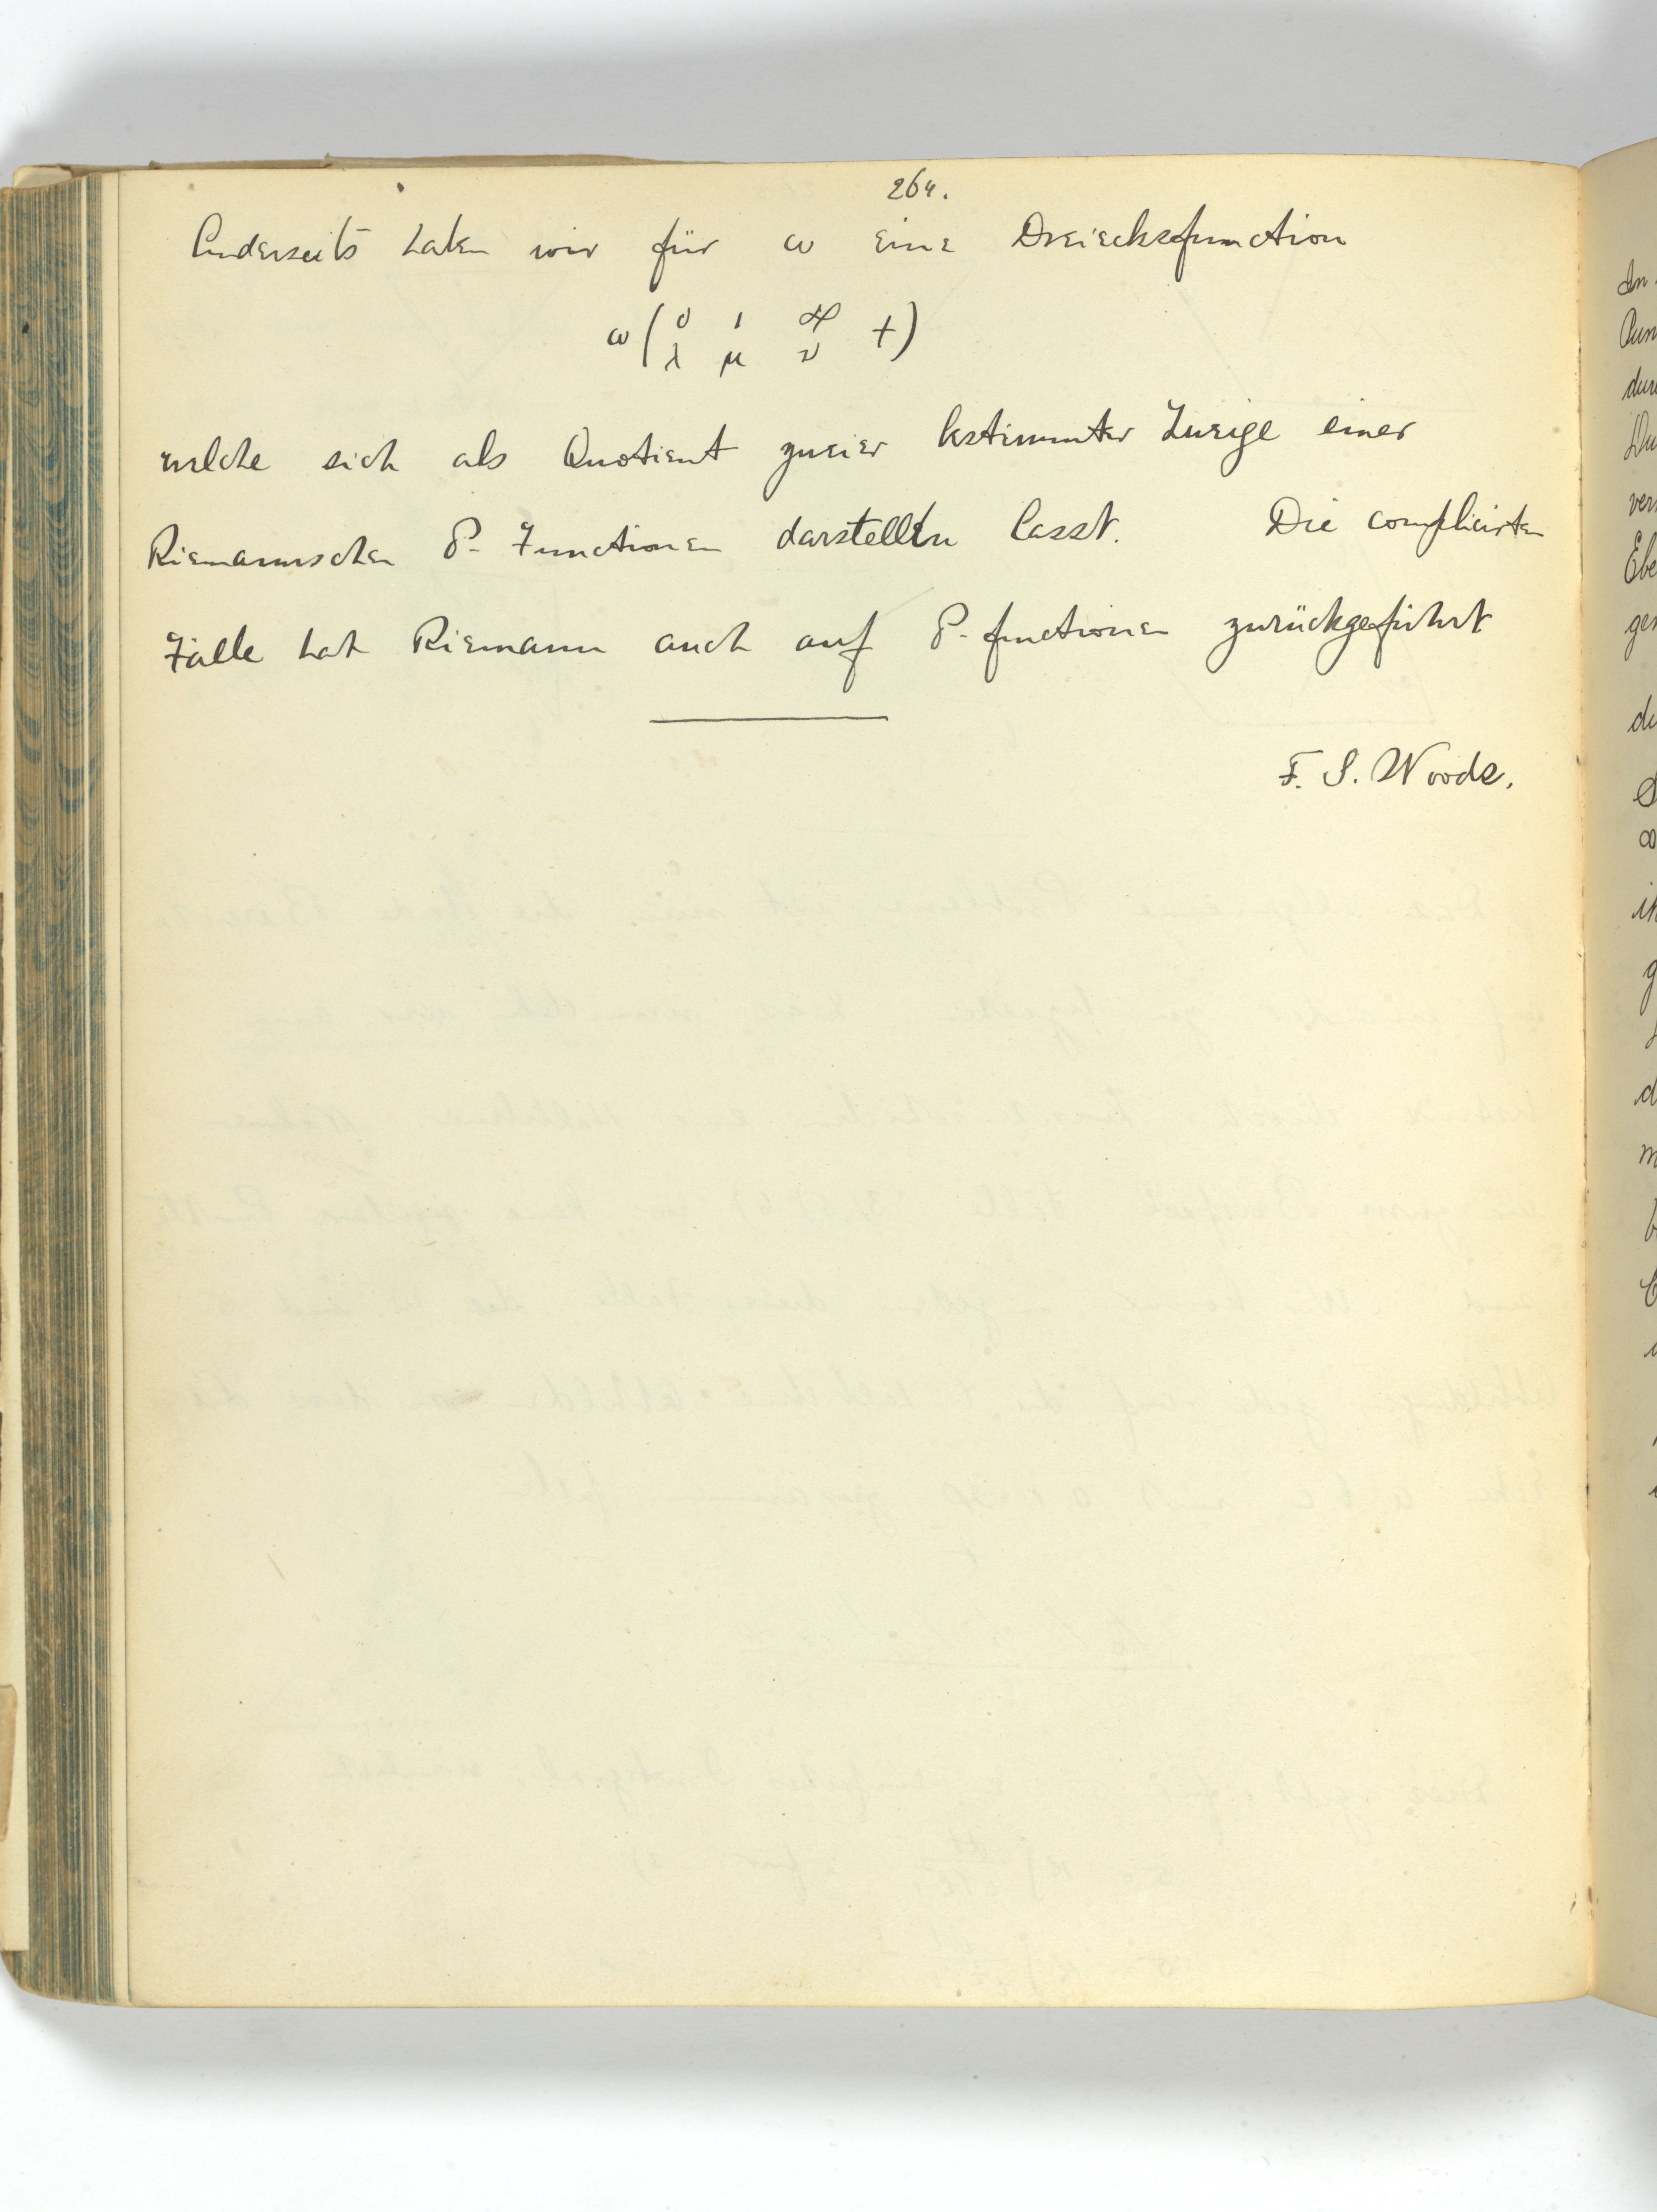 264.
Anderseits haben wir für ω eine Dreiecksfunction
ω ( 0 1 ∞ t )
λ μ ν
welche sich als Quotient zweier bestimmter Zweige einer
Riemannschen P-Functionen darstellen lasst. Die complicirten
Fälle hat Riemann auch auf P-functionen zurückgeführt
F. S. Woods.